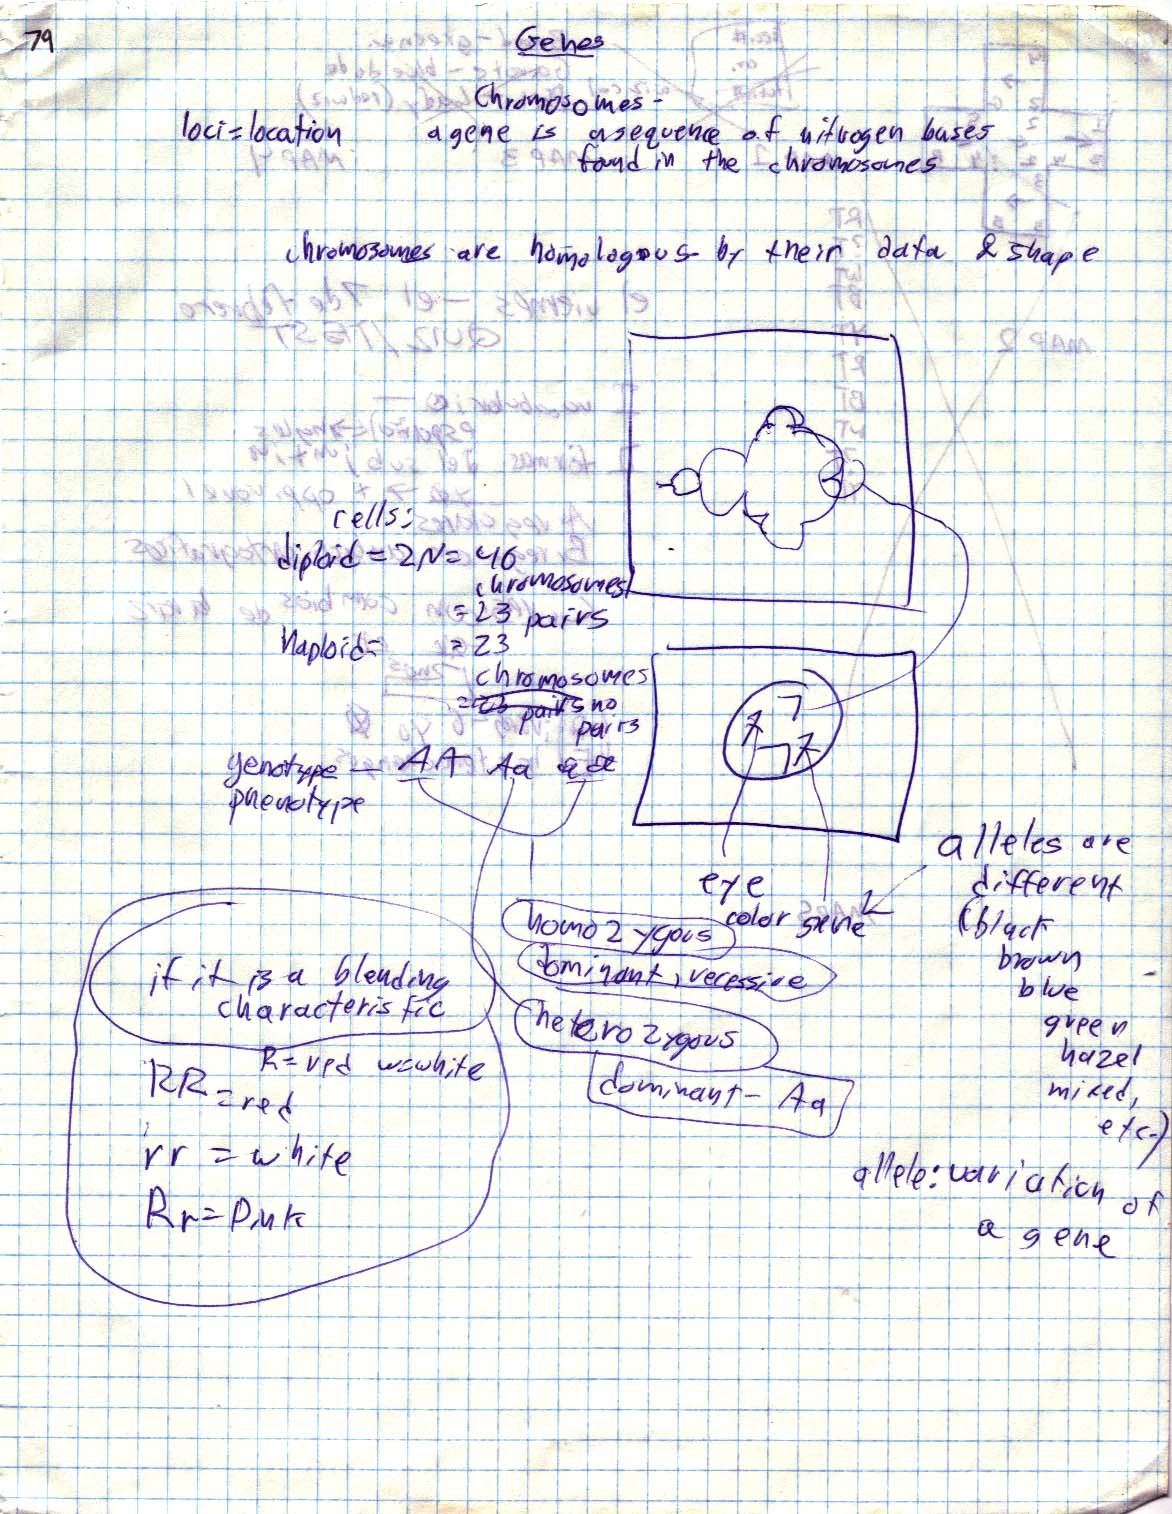 79
Genes
Chromosomes-
loci=location
a gene is a sequence of nitrogen bases
found in the chromosomes
chromosomes are homologous by their data & shape
cells:
diploid = 2N = 46
chromosomes
= 23 pairs
Haploid= = 23
chromosomes
= 23 pairs no
pairs
genotype — AA Aa aa
phenotype
eye
color gene
alleles are
different
(black
brown
blue
green
hazel
mixed,
etc.)
allele: variation of
a gene
homozygous
dominant, recessive
heterozygous
dominant- Aa
if it is a blending
characteristic
R=red w=white
RR =red
rr = white
Rr=Pink
el viernes - el 7 de febrero
QUIZ/TEST
MAP 2